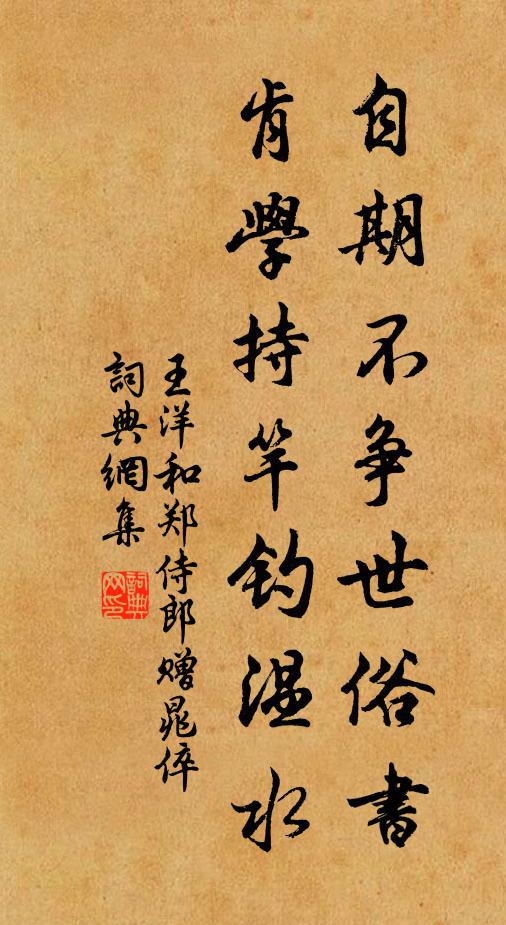 自期不争世俗書
肯學持竿釣温水
王洋和郑侍郎赠晁倅
詞典網集
詞典网印